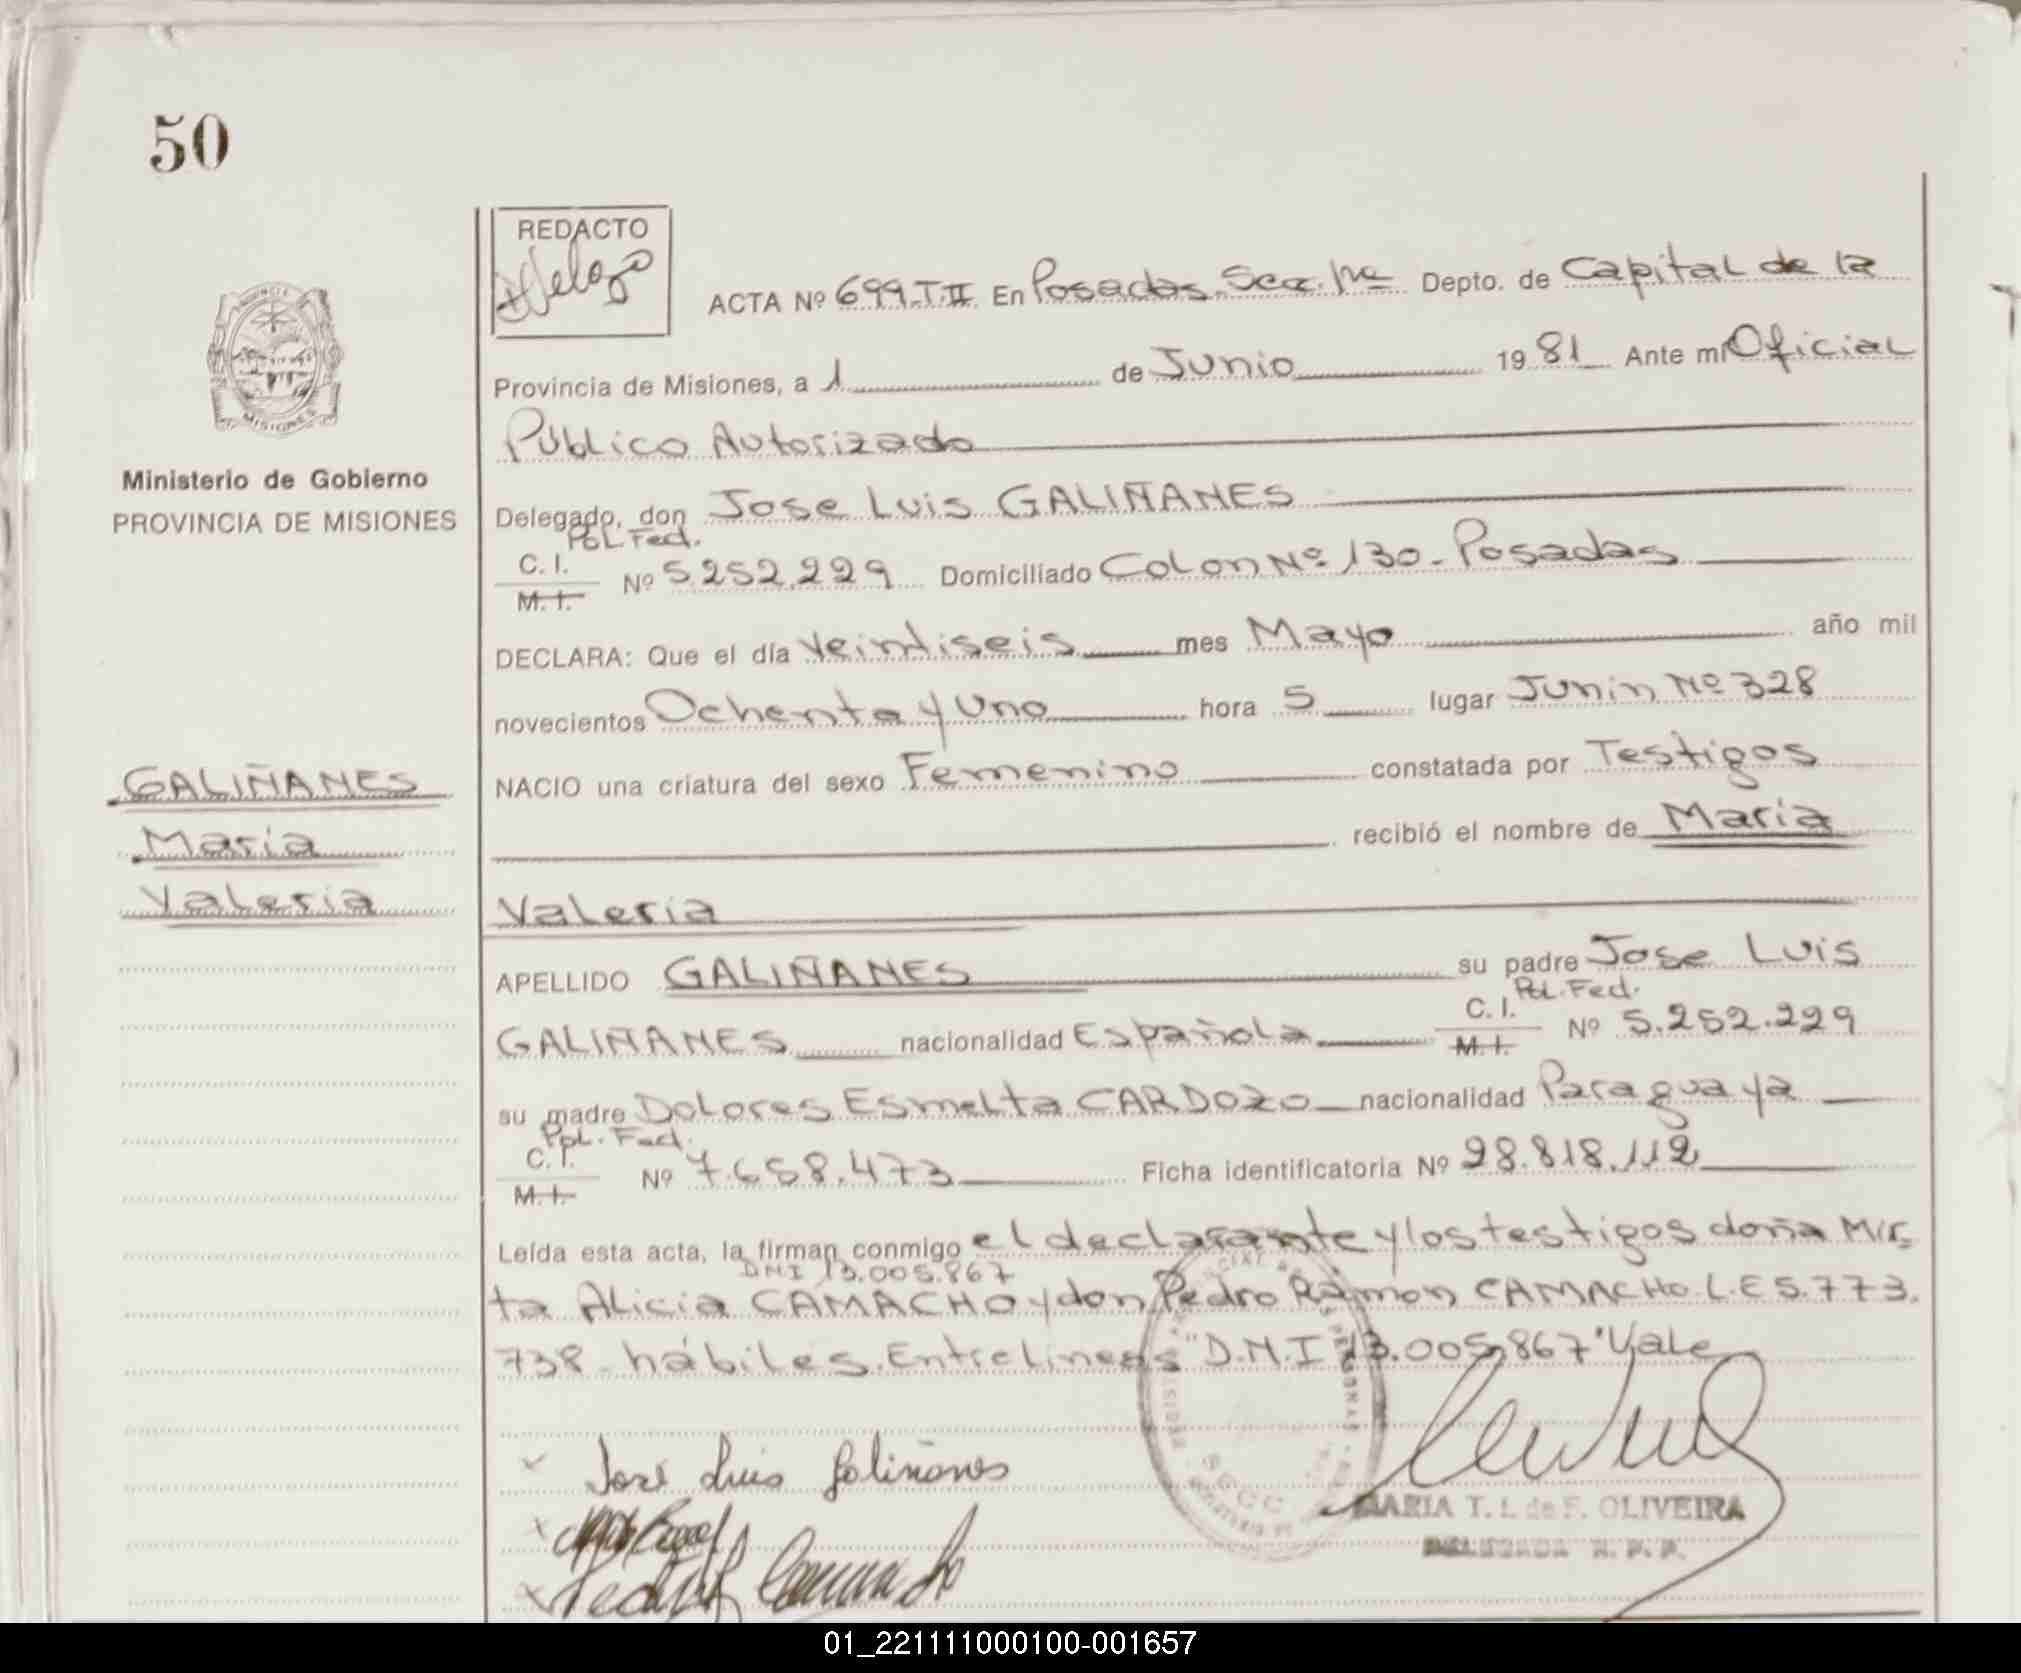 50
REDACTO
ACTA Nº 699.T.II En Posadas. Secc. 1ra Depto. de Capital de la
Provincia de Misiones, a 1 de Junio 1981 Ante mi Oficial
Público Autorizado
Ministerio de Gobierno
PROVINCIA DE MISIONES
Delegado, don Jose Luis GALIÑANES
Pol. Fed.
C. I.
M. I.
Nº 5.252.229 Domiciliado Colon Nº 130 - Posadas
DECLARA: Que el día Veintiseis mes Mayo año mil
novecientos Ochenta y Uno hora 5 lugar Junin Nº 328
NACIO una criatura del sexo Femenino constatada por Testigos
recibió el nombre de Maria
Valeria
GALIÑANES
Maria
Valeria
APELLIDO GALIÑANES su padre Jose Luis
Pol. Fed.
GALIÑANES nacionalidad Española C. I. M. I. Nº 5.252.229
su madre Dolores Esmelta CARDOZO nacionalidad Paraguaya
Pol. Fed.
C. I.
M. I.
Nº 7.658.473 Ficha identificatoria Nº 28.818.112
Leída esta acta, la firman conmigo el declarante y los testigos doña Mir-
DNI 13.005.867
ta Alicia CAMACHO y don Pedro Ramón CAMACHO L.E 5.773.
738 - hábiles. Entrelineas "D.N.I 13.005.867" Vale
José Luis Galiñanes
MARIA T. L de F. OLIVEIRA
DELEGADA R. P. P.
01_221111000100-001657